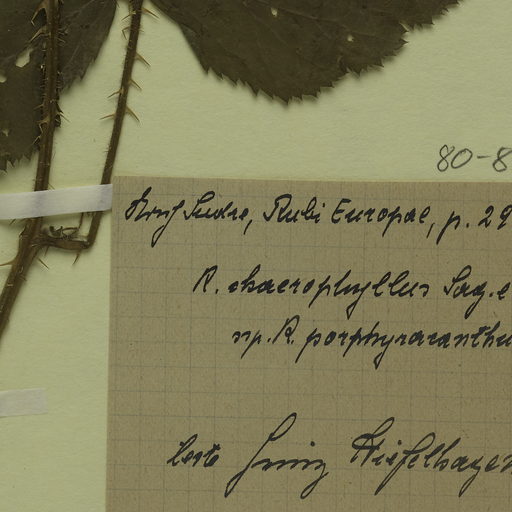 80-8
Sudre, Rubi Europae, p. 29
R. chaerophyllus Sag. e
sp. R. porphyracanthu
teste Kiefelhagen